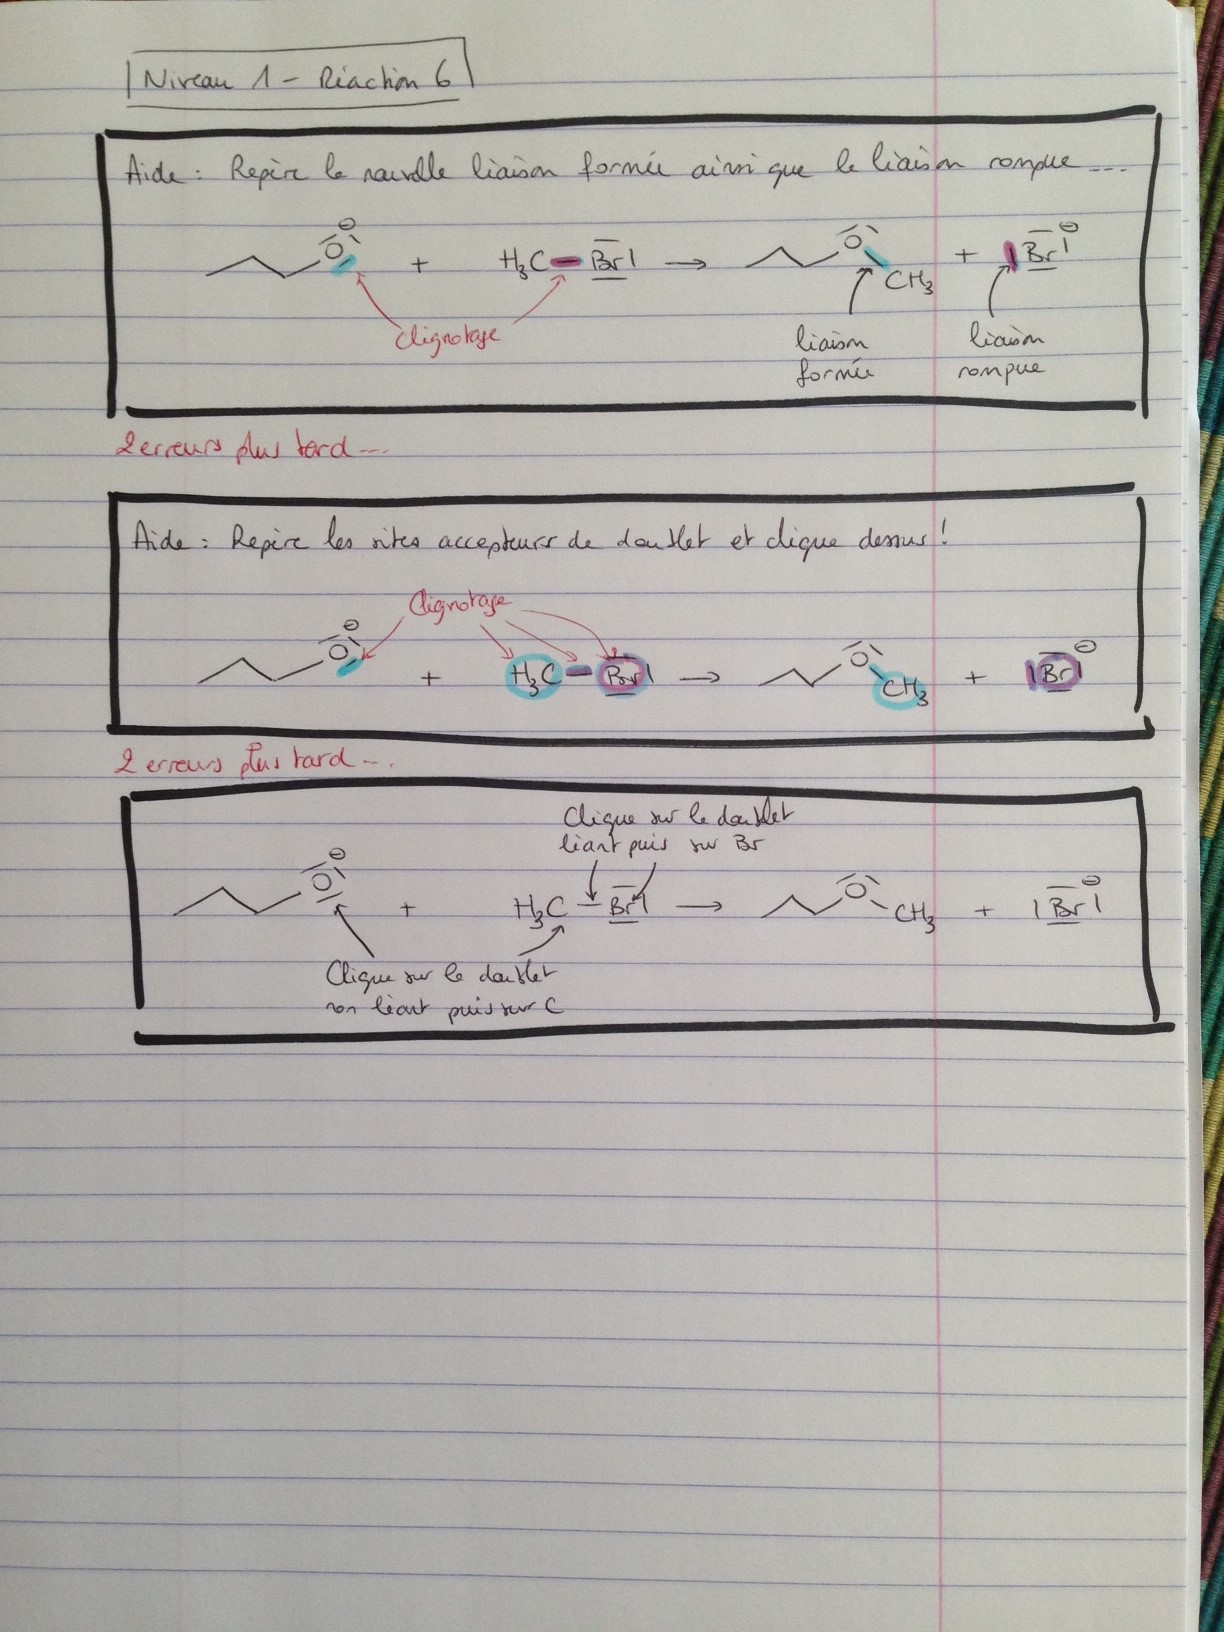 Niveau 1 - Réaction 6
Aide : Repère la nouvelle liaison formée ainsi que la liaison rompue ...
O ⊖ + H3C - Br → O CH3 + Br ⊖
Clignotage
liaison formée
liaison rompue
2 erreurs plus tard ...
Aide : Repère les sites accepteurs de doublet et clique dessus !
Clignotage
O ⊖ + H3C - Br → O CH3 + Br ⊖
2 erreurs plus tard ...
Clique sur le doublet
liant puis sur Br
O ⊖ + H3C - Br → O CH3 + Br ⊖
Clique sur le doublet
non liant puis sur C